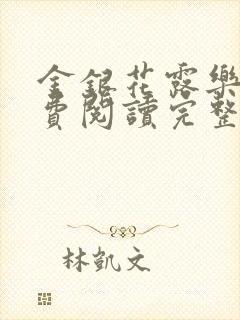 金銀花露樂
費閱讀完整
林凱文